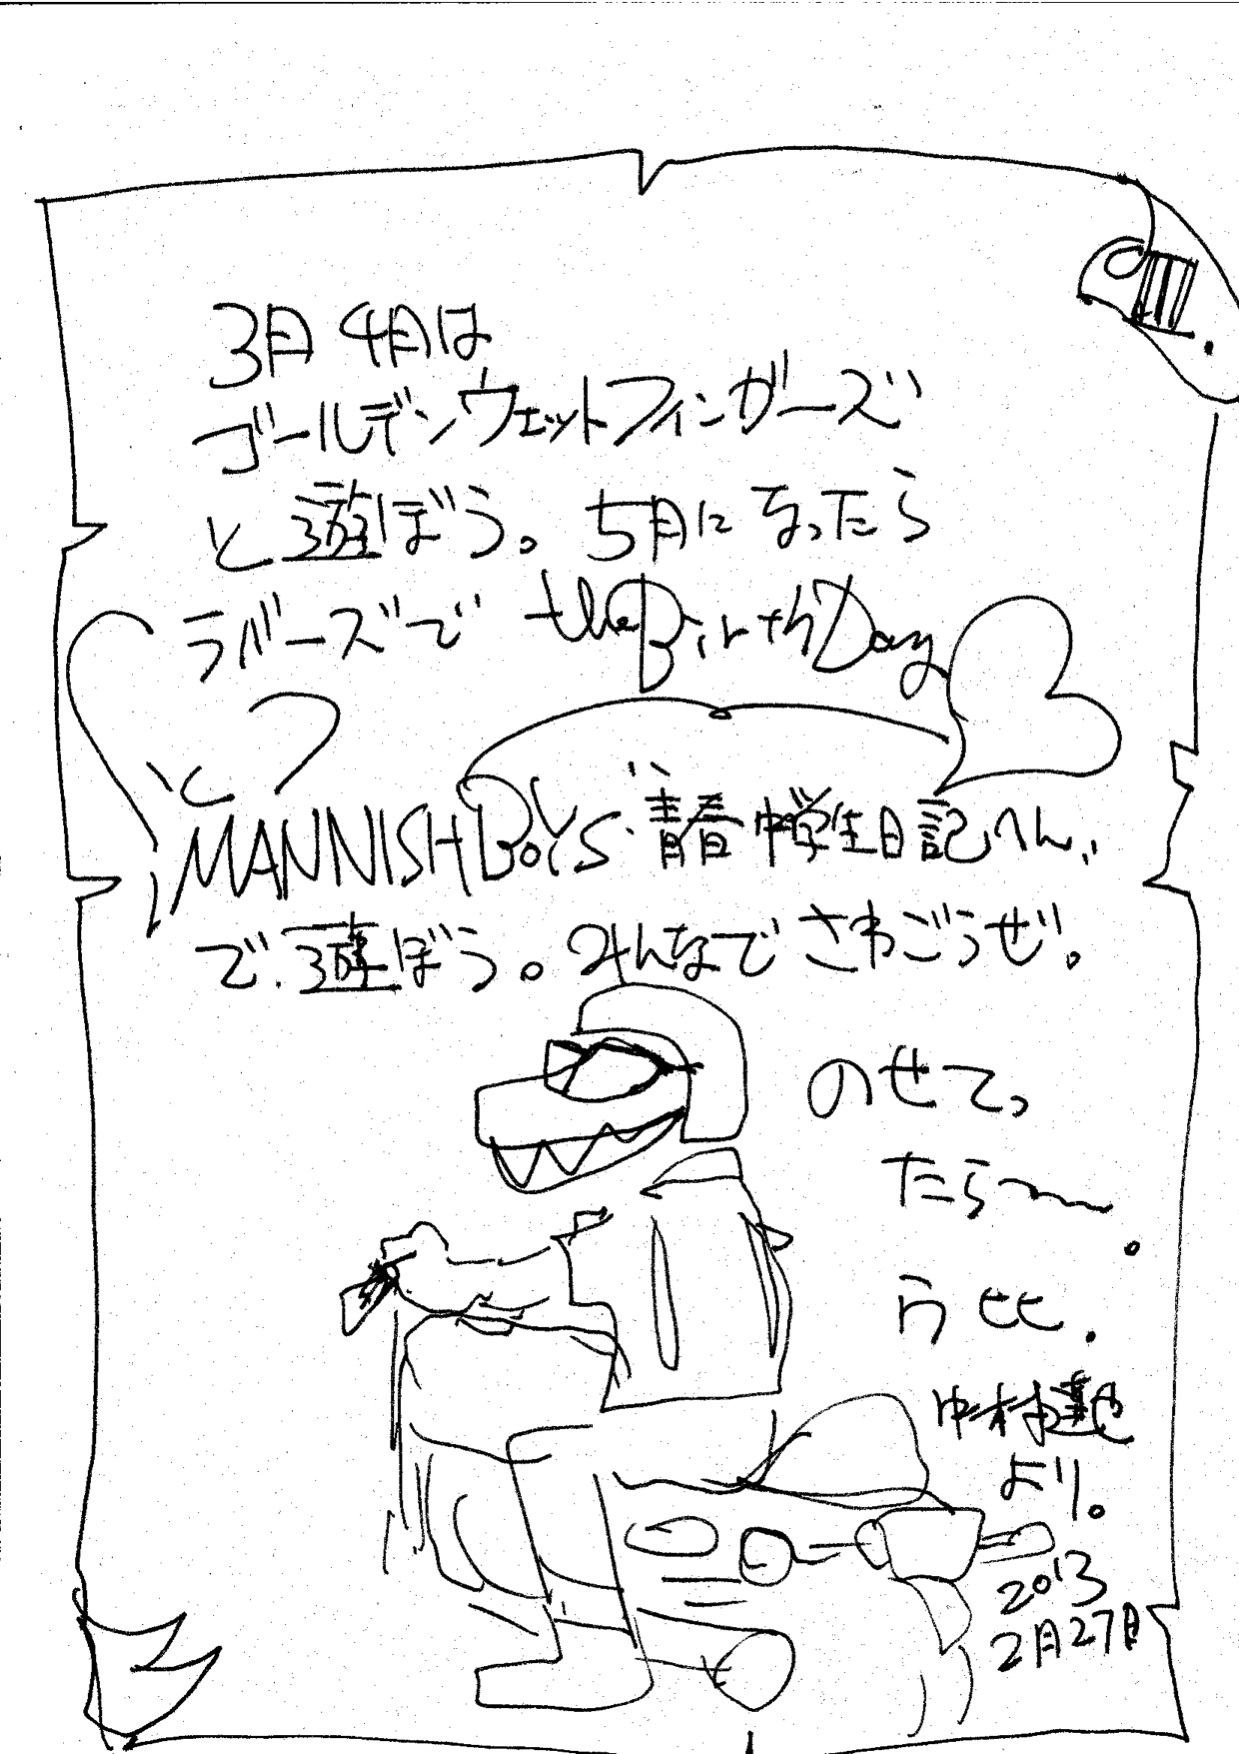 3月4月は
ゴールデンウェットフィンガーズ
と遊ぼう。5月になったら
ラバーズで theBirthDay
と
MANNISH BoYS "青春中学生日記へん"
で遊ぼう。みんなでさわごうぜ。
のせてっ
たら〜。
うヒヒ.
中村達也
より。
2013
2月27日